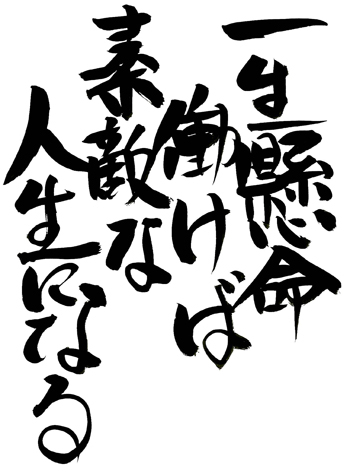 一生懸命
働けば
素敵な
人生になる